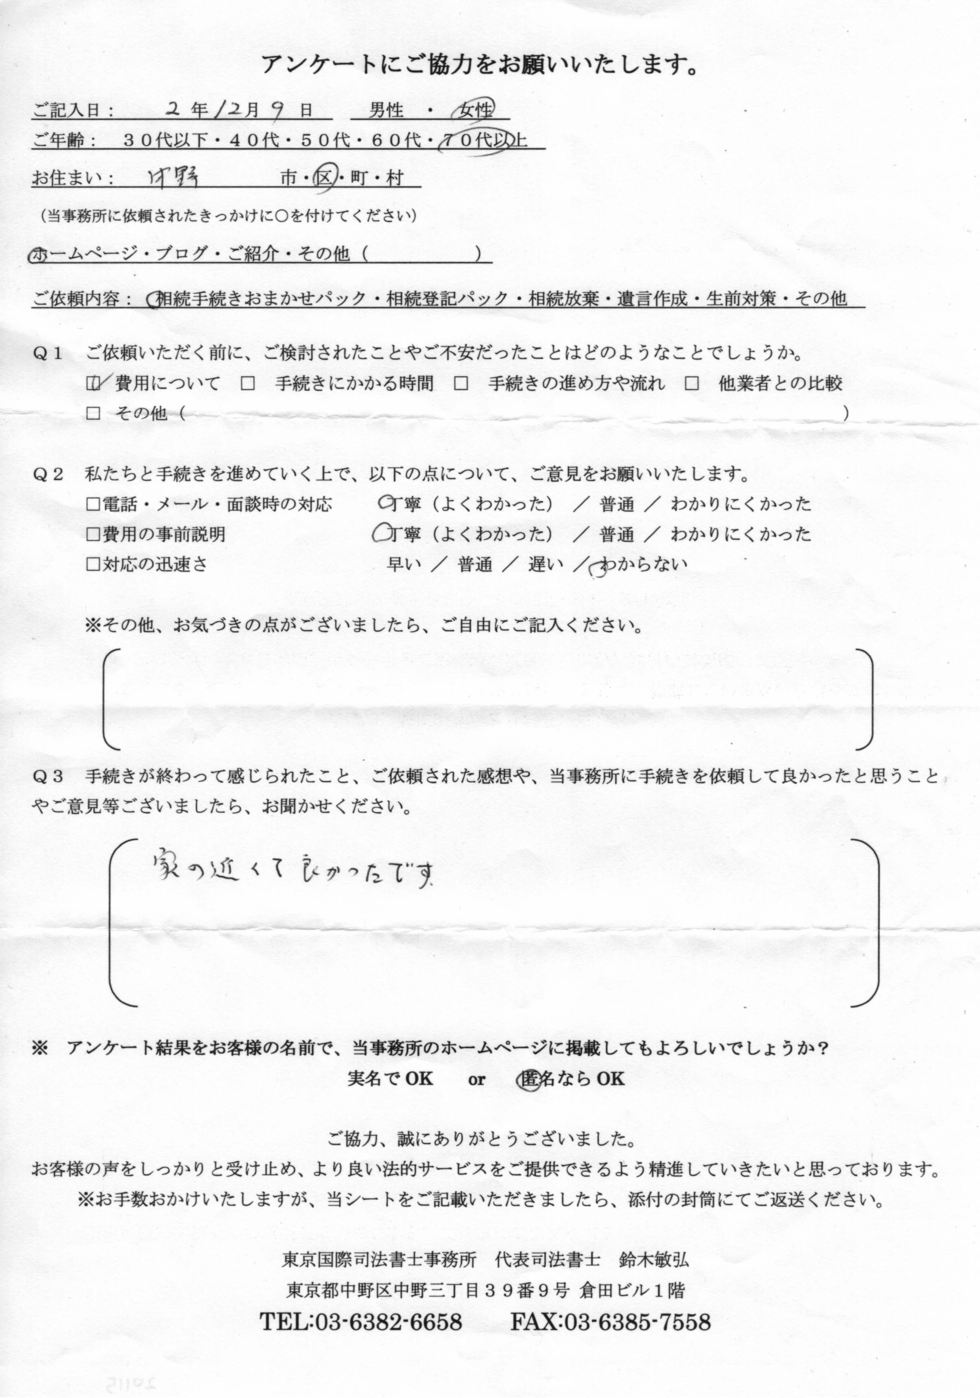 アンケートにご協力をお願いいたします。
ご記入日： 2 年 12月 9 日 男性 ・ 女性
ご年齢： 30代以下・40代・50代・60代・70代以上
お住まい： 中野 市・区・町・村
（当事務所に依頼されたきっかけに〇を付けてください）
ホームページ・ブログ・ご紹介・その他（ ）
ご依頼内容： 相続手続きおまかせパック・相続登記パック・相続放棄・遺言作成・生前対策・その他
Q1 ご依頼いただく前に、ご検討されたことやご不安だったことはどのようなことでしょうか。
☑ 費用について □ 手続きにかかる時間 □ 手続きの進め方や流れ □ 他業者との比較
□ その他（ ）
Q2 私たちと手続きを進めていく上で、以下の点について、ご意見をお願いいたします。
□電話・メール・面談時の対応 丁寧（よくわかった） ／ 普通 ／ わかりにくかった
□費用の事前説明 丁寧（よくわかった） ／ 普通 ／ わかりにくかった
□対応の迅速さ 早い ／ 普通 ／ 遅い ／ わからない
※その他、お気づきの点がございましたら、ご自由にご記入ください。
Q3 手続きが終わって感じられたこと、ご依頼された感想や、当事務所に手続きを依頼して良かったと思うこと
やご意見等ございましたら、お聞かせください。
家の近くて良かったです
※ アンケート結果をお客様の名前で、当事務所のホームページに掲載してもよろしいでしょうか？
実名でOK or 匿名ならOK
ご協力、誠にありがとうございました。
お客様の声をしっかりと受け止め、より良い法的サービスをご提供できるよう精進していきたいと思っております。
※お手数おかけいたしますが、当シートをご記載いただきましたら、添付の封筒にてご返送ください。
東京国際司法書士事務所 代表司法書士 鈴木敏弘
東京都中野区中野三丁目39番9号 倉田ビル1階
TEL:03-6382-6658 FAX:03-6385-7558